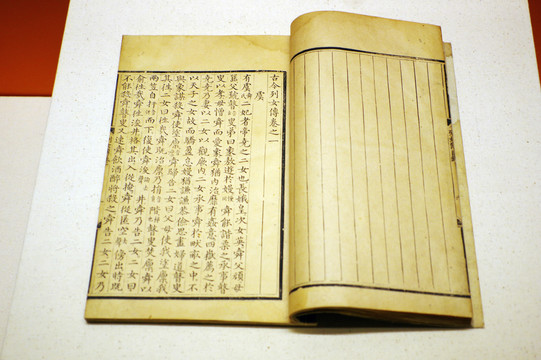 古今列女傳卷之一
虞
有虞二妃者帝堯之二女也長娥皇次女英舜父頑母
嚚父號瞽叟弟曰象敖遊於嫚舜能諧柔之承事瞽
叟以孝母憎舜而愛象舜猶內治靡有姦意四嶽薦之於
堯堯乃妻以二女以觀厥內二女承事舜於畎畝之中不
以天子之女故而驕盈怠嫚猶謙謙恭儉思盡婦道瞽叟
與象謀殺舜使塗廩舜歸告二女曰父母使我塗廩我
其往二女曰往哉舜既治廩乃捐階瞽叟焚廩舜以
兩笠自扞而下復使舜浚井舜乃告二女二女曰
俞往哉舜往浚井格其出入從掩舜從匿空旁出時既
不能殺舜瞽叟又速舜飲酒醉將殺之舜告二女二女乃